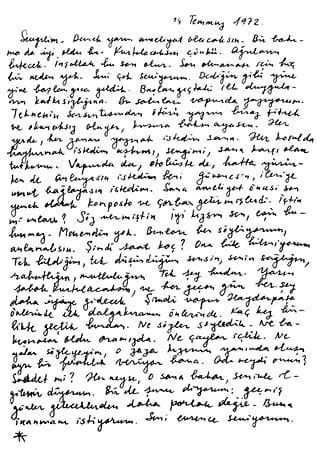 14 Temmuz 1972.
Sevgilim. Demek yarın ameliyat olacaksın. Bir bakı-
ma da iyi oldu bu. Kurtulacaksın çünkü. Ağrıların
bitecek. İnşallah bu son olur. Son olmaması için hiç
bir neden yok. Seni çok seviyorum. Dediğin gibi yine
yine başlangıca geldik. Başlangıçtaki ilk duygula-
rın katkısızlığına. Bu satırları vapurda yazıyorum.
Teknenin sarsıntısından ötürü yazım biraz titrek
ve okunaksız oluyor, kusura bakmayasın. Her
yerde, her zaman yazmak istedim sana. Her koşulda
haykırmak istedim aşkımı, sevgimi, sana karşı olan
tutkumu. Vapurda da, otobüste de, hatta yürür-
ken de anlayasın istedim beni. Güvenesin, ileriye
umut bağlayasın istedim. Sana ameliyat öncesi son
yemek olarak komposto ve çorba getirmişlerdi. İçtin
mi onları? Söz vermiştin iyi kızım sen, için bu-
lunmaz. Memnunum yok. Bunları hep söylüyorum,
anlamalısın. Şimdi saat kaç? Onu bile bilmiyorum
Tek bildiğim, tek düşündüğüm sensin, senin sağlığın,
rahatlığın, mutluluğun. Tek şey budur. Yarın
sabah kurtulacaksın, ve her geçen gün her şey
daha iyiye gidecek. Şimdi vapur Haydarpaşa
önlerinde ilk dalgakıranın önlerinde. Kaç kez bir-
likte geçtik burdan. Ne sözler söyledik. Ne ba-
kışmalar oldu aramızda. Ne çaylar içtik. Ne
yalan söyleyeyim, o gaga burnun yanımda oluşu
ayrı bir ferahlık veriyor bana. Adı neydi onun?
Saadet mi? Her neyse, o sana bakar, seninle il-
gilenir diyorum. Bir de şunu diyorum: geçmiş
günler geleceklerden daha parlak değil. Buna
inanmanı istiyorum. Seni evrence seviyorum.